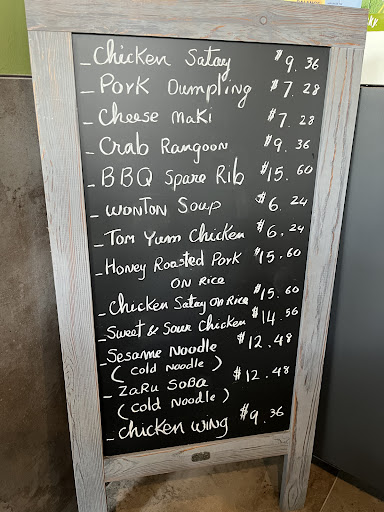 - Chicken Satay $9.36
- Pork Dumpling $7.28
- Cheese maki $7.28
- Crab Rangoon $9.36
- BBQ Spare Rib $15.60
- WONTON Soup $6.24
- Tom Yum Chicken $6.24
- Honey Roasted Pork $15.60
ON RICE
- Chicken Satay ON RICE $15.60
- Sweet & Sour Chicken $14.56
- Sesame Noodle $12.48
(Cold Noodle)
- ZaRu SoBa $12.48
(Cold Noodle)
- Chicken WING $9.36